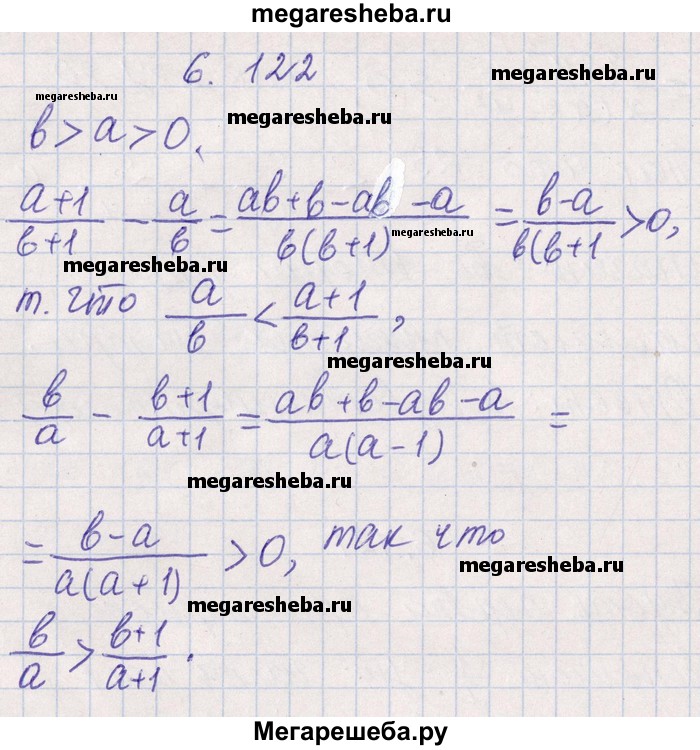 megaresheba.ru
6. 122
megaresheba.ru
megaresheba.ru
в > а > 0,
megaresheba.ru
(а+1)/(в+1) − а/в = (ав+в−ав−а)/(в(в+1) = (в−а)/(в(в+1 > 0,
megaresheba.ru
megaresheba.ru
т. что а/в < (а+1)/(в+1),
megaresheba.ru
в/а − (в+1)/(а+1) = (ав+в−ав−а)/(а(а−1)) =
megaresheba.ru
= (в−а)/(а(а+1)) > 0, так что
megaresheba.ru
megaresheba.ru
в/а > (в+1)/(а+1).
megaresheba.ru
Мегарешеба.ру